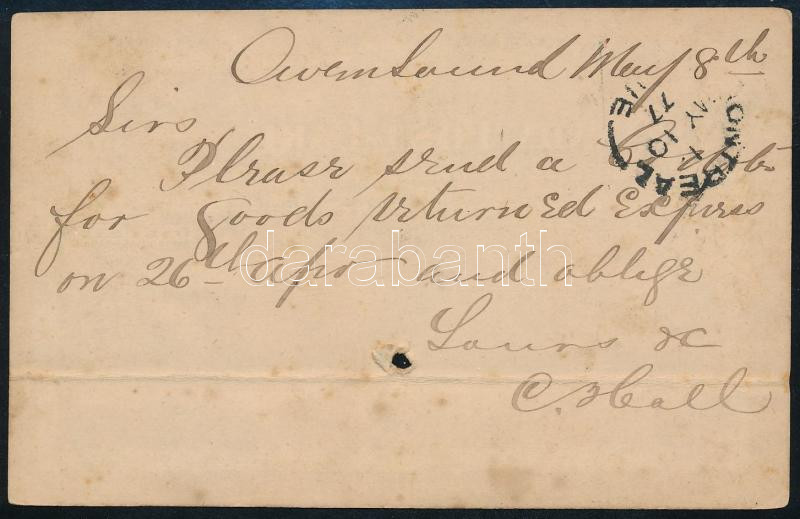 Owen Sound May 8th
Sirs
Please send a Cr note
for goods returned Express
on 26th apr and oblige
Yours &c
C. Hall
MONTREAL
MY 10
77
QUE
darabanth